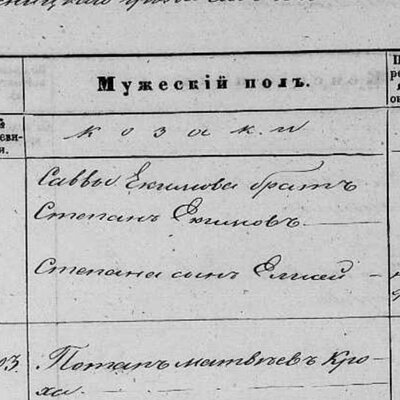 Мужескій полъ.
козаки
Саввы Екимова братъ
Степанъ Екимовъ
Степана сынъ Елисей
Потапъ Матвѣевъ Кро-
ха.